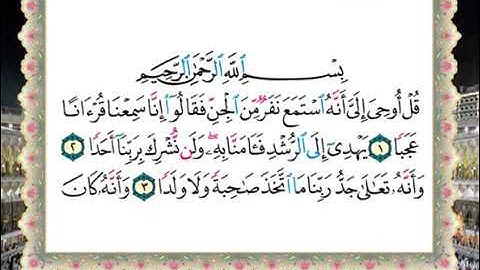 بِسْمِ ٱللَّهِ ٱلرَّحْمَٰنِ ٱلرَّحِيمِ
قُلْ أُوحِىَ إِلَىَّ أَنَّهُ ٱسْتَمَعَ نَفَرٌ مِّنَ ٱلْجِنِّ فَقَالُوٓا۟ إِنَّا سَمِعْنَا قُرْءَانًا
عَجَبًا ١ يَهْدِىٓ إِلَى ٱلرُّشْدِ فَـَٔامَنَّا بِهِۦ وَلَن نُّشْرِكَ بِرَبِّنَآ أَحَدًا ٢
وَأَنَّهُۥ تَعَٰلَىٰ جَدُّ رَبِّنَا مَا ٱتَّخَذَ صَٰحِبَةً وَلَا وَلَدًا ٣ وَأَنَّهُۥ كَانَ